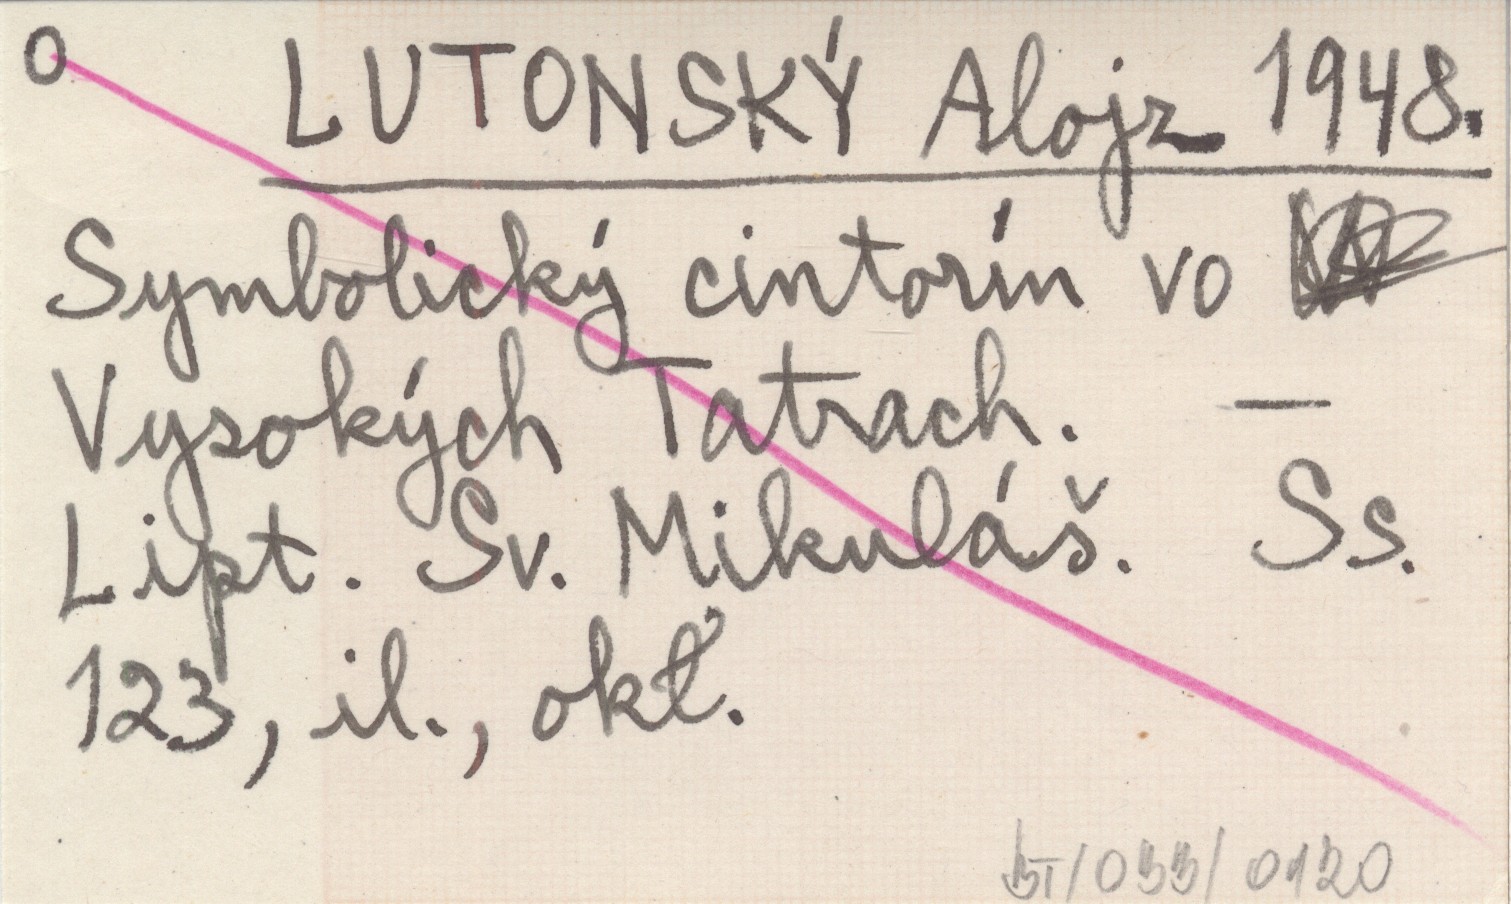 O LUTONSKÝ Alojz 1948.
Symbolický cintorín vo
Vysokých Tatrach. —
Lipt. Sv. Mikuláš. Ss.
123, il., okť.
/033/0120